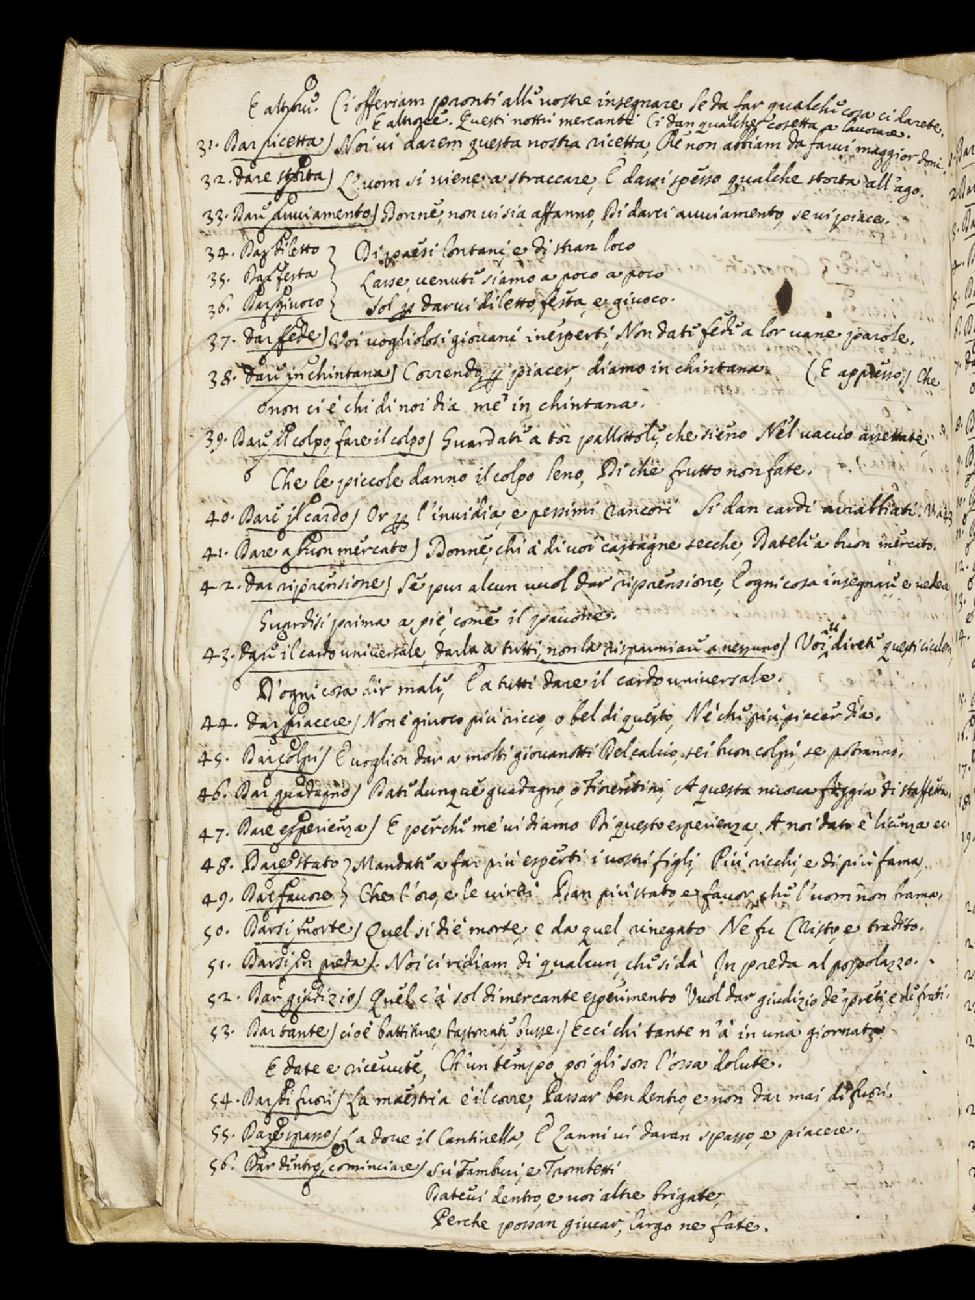 E altrove. Ci offeriam pronti alle vostre insegnare Se da far qualche cosa ci darete.
E altrove. Questi nostri mercanti Ci dan qualche cosetta a lavorare.
31. Dar ricetta) Noi vi darem questa nostra ricetta, Che non abbiam da farvi maggior doni.
32. Dare storta) L'uom si viene a straccare, E dassi spesso qualche storta all'ago.
33. Dare avviamento) Donne, non vi sia affanno, Di darci avviamento, se vi piace.
34. Dar diletto } Di paesi lontani, e di stran loco
35. Dar festa } Lasse, venute siamo a poco a poco
36. Dar givoco } Sol p darvi diletto, festa, e givoco.
37. Dar fede) Voi vogliolosi giovani inesperti, Non date fede a lor vane parole.
38. Dare in chintana) Correndo p piacer, diamo in chintana. (E appresso) Che
non ci è chi di noi dia me' in chintana.
39. Dare il colpo, fare il colpo) Guardate a tor pallottole, che sieno Nel vacuo assettate,
Che le piccole danno il colpo leno, Di che frutto non fate.
40. Dare il cardo) Or p l'invidia, e pessimi rancori Si dan cardi arrabbiati.
41. Dare a buon mercato) Donne, chi à di voi castagne secche, Dateli a buon mercato.
42. Dar riprensione) Se pur alcun vuol dar riprensione, E ogni cosa insegnare e vedere
Guardisi prima a piè, come il pavone.
43. Dare il cardo universale, darla a tutti, non la risparmiare a nessuno) Voi direte questi
D'ogni cosa dir male, E a tutti dare il cardo universale.
44. Dar piacere) Non è givoco più ricco, o bel di questo, Nè che più piacer dia.
45. Dar colpi) E voglion dar a molti giovanotti Del calcio, sei buon colpi, se potranno.
46. Dar guadagno) Date dunque guadagno, o Fiorentini, A questa nuova foggia di staffette.
47. Dare esperienza) E perchè me' vi diamo Di questo esperienza, A noi date licenza
48. Dare stato } Mandate a far più esperti i vostri figli, Più ricchi, e di più fama,
49. Dar favore } Che l'oro, e le virtù Dan più stato, e favor, che l'uom non brama.
50. Darsi morte) Quel si diè morte, e da quel, rinegato Ne fu Cristo, e tradito.
51. Darsi in preda). Noi ci ridiam di qualcun, che si dà In preda al popolazzo.
52. Dar giudizio) Quel c'à sol di mercante esperimento Vuol dar giudizio de' preti, e di frati.
53. Dar tante) cioè battiture, bastonate, busse) Ecci chi tante n'à in una giornata
E date e ricevute, Ch'un tempo poi gli son l'ossa dolute.
54. Dar di fuori) La maestria è il correr, Passar ben dentro, e non dar mai di fuori.
55. Dare spasso) La dove il Cantinella, E Zanni vi daran spasso, e piacere.
56. Dar dentro, cominciare) Su Tamburi, e Trombetti
Datevi dentro, e voi altre brigate,
Perche possan givcar, largo ne fate.